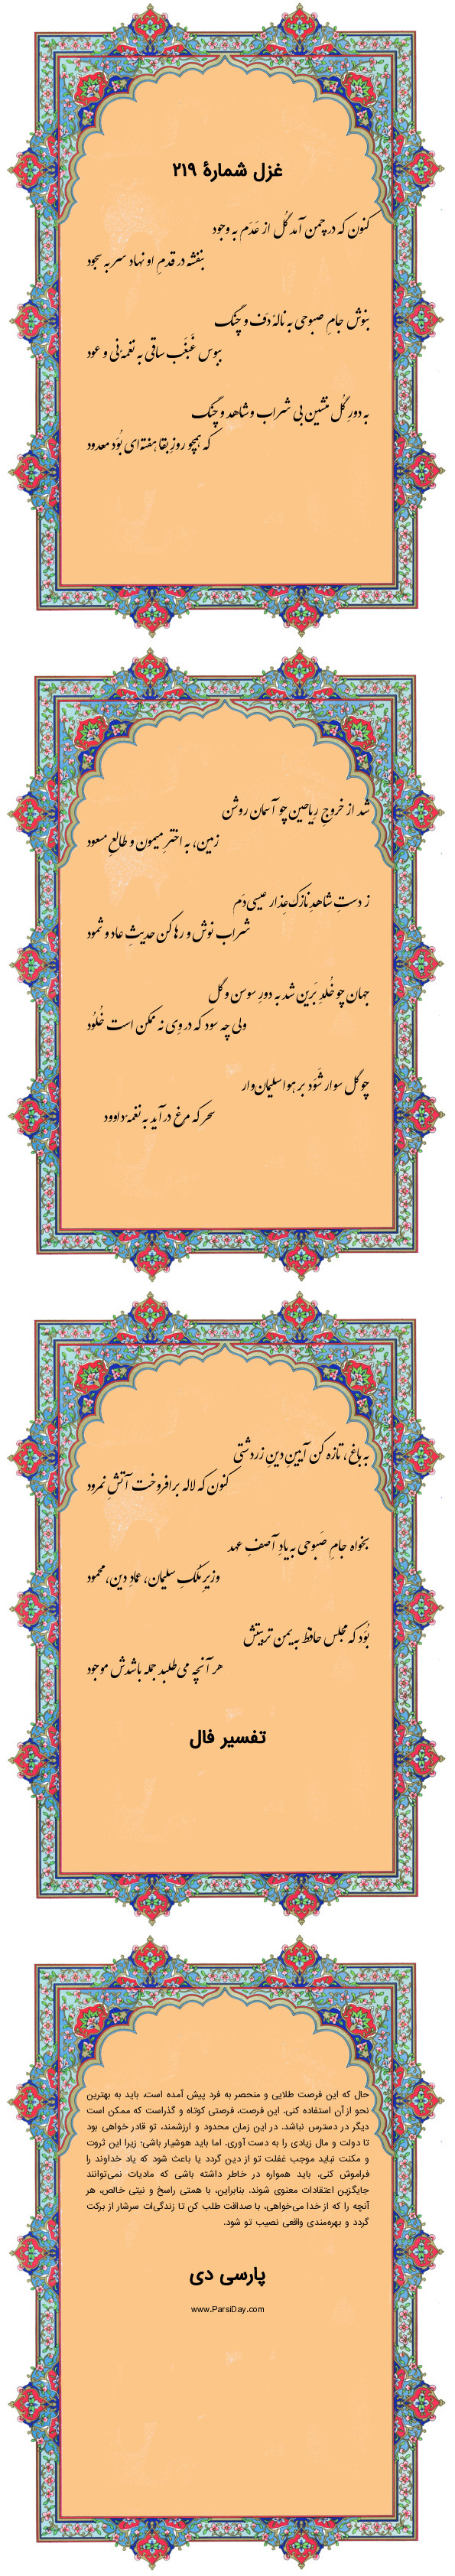 غزل شمارهٔ ۲۱۹
کنون که در چمن آمد گُل از عَدَم به وجود
بنفشه در قدمِ او نهاد سر به سجود
بنوش جامِ صبوحی به نالهٔ دَف و چنگ
ببوس غَبغَبِ ساقی به نغمهٔ نی و عود
به دورِ گُل منشین بی شراب و شاهد و چنگ
که همچو روزِ بقا هفته‌ای بُوَد معدود
شد از خروجِ ریاحین چو آسمان روشن
زمین، به اخترِ میمون و طالعِ مسعود
ز دستِ شاهدِ نازک‌عِذار عیسی‌دَم
شراب نوش و رها کن حدیثِ عاد و ثمود
جهان چو خُلدِ بَرین شد به دورِ سوسن و گل
ولی چه سود که در وِی نه ممکن است خُلُود
چو گل سوار شَوَد بر هوا سلیمان‌وار
سحر که مرغ درآید به نغمهٔ داوود
به باغ، تازه کن آیینِ دینِ زردشتی
کنون که لاله برافروخت آتشِ نمرود
بخواه جامِ صَبوحی به یادِ آصفِ عهد
وزیرِ مُلکِ سلیمان، عمادِ دین، محمود
بُوَد که مجلس حافظ به یمن تربیتش
هر آنچه می‌طلبد جمله باشدش موجود
تفسیر فال
حال که این فرصت طلایی و منحصر به فرد پیش آمده است، باید به بهترین
نحو از آن استفاده کنی. این فرصت، فرصتی کوتاه و گذراست که ممکن است
دیگر در دسترس نباشد. در این زمان محدود و ارزشمند، تو قادر خواهی بود
تا دولت و مال زیادی را به دست آوری. اما باید هوشیار باشی؛ زیرا این ثروت
و مکنت نباید موجب غفلت تو از دین گردد یا باعث شود که یاد خداوند را
فراموش کنی. باید همواره در خاطر داشته باشی که مادیات نمی‌توانند
جایگزین اعتقادات معنوی شوند. بنابراین، با همتی راسخ و نیتی خالص، هر
آنچه را که از خدا می‌خواهی، با صداقت طلب کن تا زندگی‌ات سرشار از برکت
گردد و بهره‌مندی واقعی نصیب تو شود.
پارسی دی
www.ParsiDay.com